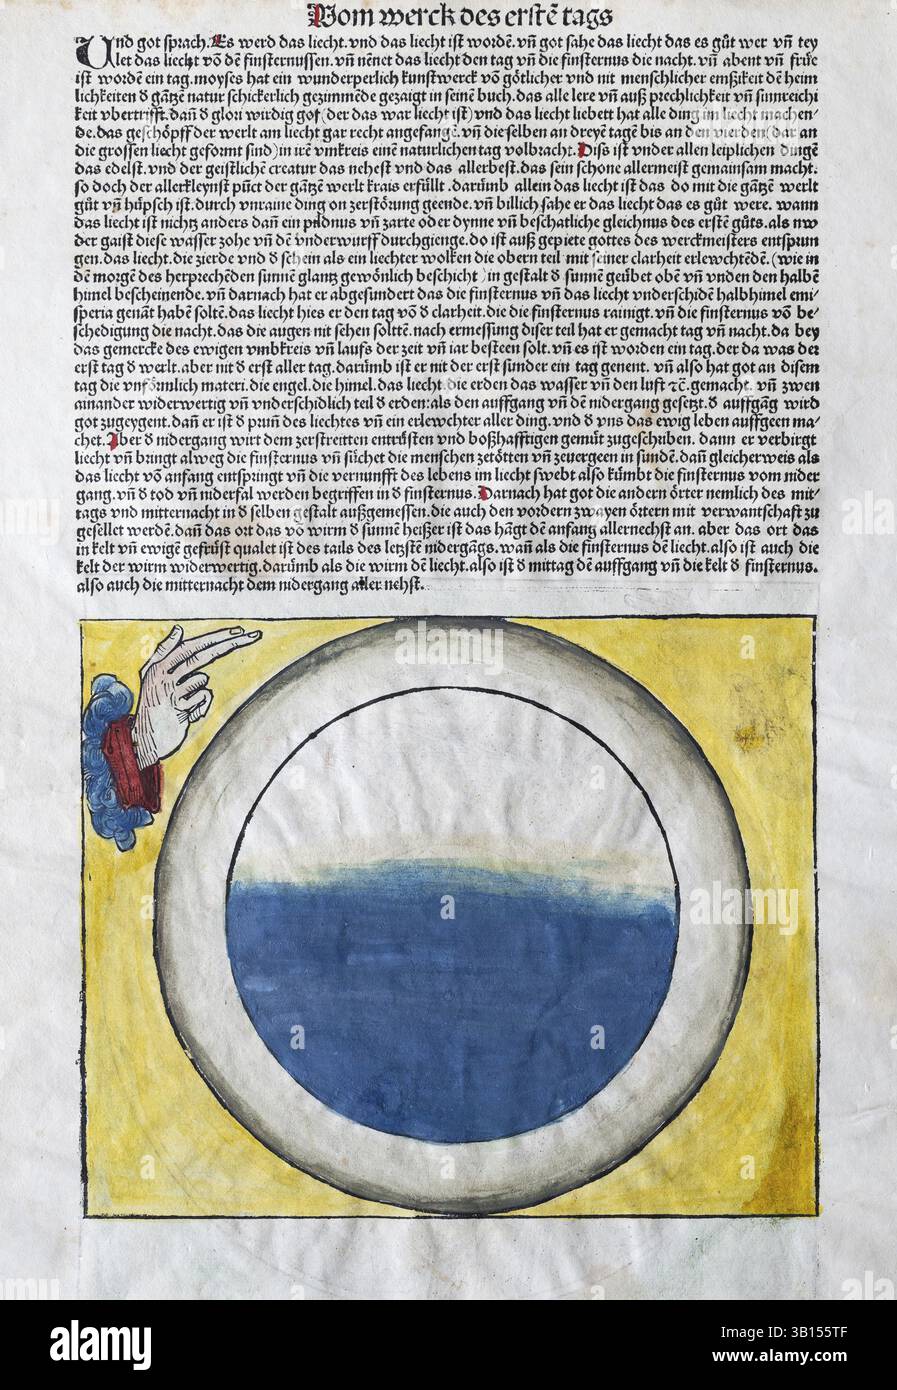 Vom werck des erstē tags
Und got sprach. Es werd das liecht. vnd das liecht ist wordē. vñ got sahe das liecht das es gůt wer vñ tey
let das liecht võ dē finsternussen. vñ nēnet das liecht den tag vñ die finsternus die nacht. vñ abent vñ früe
ist wordē ein tag. moyses hat ein wunderperlich kunstwerck võ götlicher vnd nit menschlicher emßikeit dē heim
lichkeiten d̄ gātzē natur schickerlich gezimmēde gezaigt in seinē buch. das alle lere vñ auß prechlichkeit vñ sinnreichi
keit vbertrifft. dañ d̄ glori wirdig got (der das war liecht ist) vnd das liecht liebett hat alle ding im liecht machen⸗
de. das geschöpff der werlt am liecht gar recht angefangē. vñ die selben an dreyē tagē bis an den vierden (dar an
die grossen liecht geformt sind) in irē vmkreis einē naturlichen tag volbracht. Diss ist vnder allen leiplichen dingē
das edelst. vnd der geistlichē creatur das nehest vnd das allerbest. das sein schone allermeist gemainsam macht.
so doch der allerkleynst pūct der gātzē werlt krais erfüllt. darūmb allein das liecht ist das do mit die gātzē werlt
gůt vñ hüpsch ist. durch vnraine ding on zerstörung geende. vñ billich sahe er das liecht das es gůt were. wann
das liecht ist nichtz anders dañ ein pildnus vñ zarte oder dynne vñ beschatliche gleichnus des erstē gůts. als nw
der gaist diese wasser zohe vñ dē vnderwurff durchgienge. do ist auß gepiete gottes des werckmeisters entsprun
gen. das liecht. die zierde vnd d̄ schein als ein liechter wolken die obern teil mit seiner clarheit erlewchtēdē. (wie in
dē morgē des herprechēden sunnē glantz gewönlich beschicht) in gestalt d̄ sunnē geübet obē vñ vnden den halbē
himel bescheinende. vñ darnach hat er abgesundert das die finsternus vñ das liecht vnderschidē halbhimel emi⸗
speria genāt habē soltē. das liecht hies er den tag võ d̄ clarheit. die die finsternus rainigt. vñ die finsternus võ be⸗
schedigung die nacht. das die augen nit sehen solttē. nach ermessung diser teil hat er gemacht tag vñ nacht. da bey
das gemercke des ewigen vmbkreis vñ laufs der zeit vñ iar besteen solt. vñ es ist worden ein tag. der da was der
erst tag d̄ werlt. aber nit d̄ erst aller tag. darūmb ist er nit der erst sunder ein tag genent. vñ also hat got an disem
tag die vnförmlich materi. die engel. die himel. das liecht. die erden das wasser vñ den luft ⁊c̄. gemacht. vñ zwen
ainander widerwertig vñ vnderschidlich teil d̄ erden: als den auffgang vñ dē nidergang gesetzt. d̄ auffgāg wird
got zugeygent. dañ er ist d̄ prūn des liechtes vñ ein erlewchter aller ding. vnd d̄ vns das ewig leben auffgeen ma⸗
chet. Aber d̄ nidergang wirt dem zerstreitten entrüsten vnd boßhafftigen gemüt zugeschriben. dann er verbirgt
liecht vñ bringt alweg die finsternus vñ süchet die menschen zetötten vñ zeuergeen in sundē. dañ gleicherweis als
das liecht võ anfang entspringt vñ die vernunfft des lebens im liecht swebt also kūmbt die finsternus vom nider
gang. vñ d̄ tod vñ niderfal werden begriffen in d̄ finsternus. Darnach hat got die andern örter nemlich des mit⸗
tags vnd mitternacht in d̄ selben gestalt außgemessen. die auch den vordern zwayen örtern mit verwantschaft zu
gesellet werdē. dañ das ort das võ wirm d̄ sunnē heißer ist das hāgt dē anfang allernechst an. aber das ort das
in kelt vñ ewigē gefrüst qualet ist des tails des letztē nidergāgs. wañ als die finsternus dē liecht. also ist auch die
kelt der wirm widerwertig. darūmb als die wirm dē liecht. also ist d̄ mittag dē auffgang vñ die kelt d̄ finsternus.
also auch die mitternacht dem nidergang aller nehst.
alamy
Image ID: 3B155TF
www.alamy.com